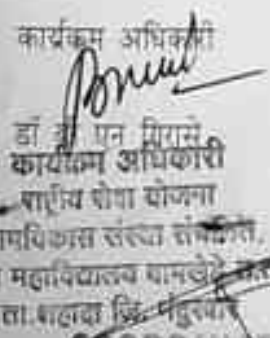 कार्यक्रम अधिकारी
डॉ एन गिरासे
कार्यक्रम अधिकारी
राष्ट्रीय सेवा योजना
ग्रामविकास संस्था संचलित,
महाविद्यालय
ता.शहादा जि. नंदुरबार